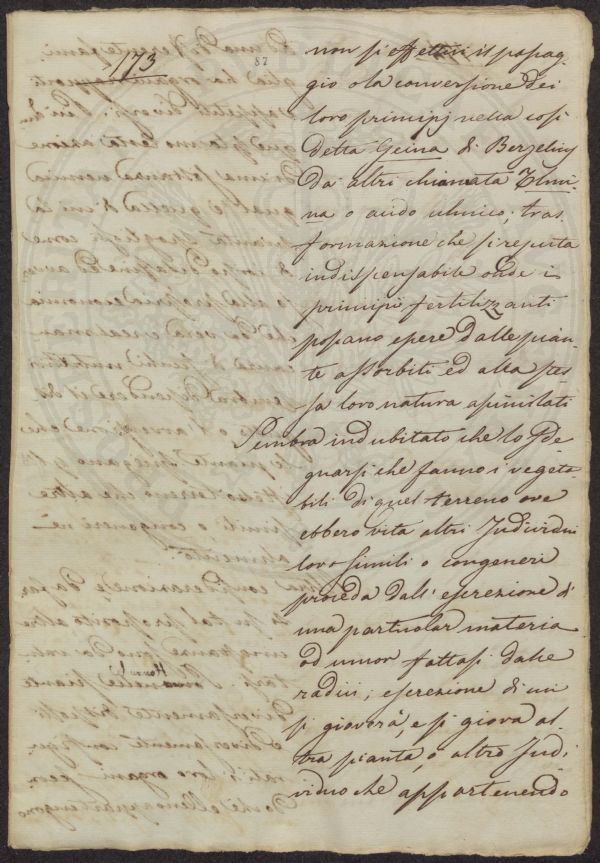 173
87
non si effettui il passag
gio o la conversione dei
loro principj nella così
detta Geina di Berzelius
da altri chiamata Ulmi
na o acido ulmico; tras
formazione che si reputa
indispensabile onde i
principii fertilizzanti
possano essere dalle pian
te assorbiti ed alla stes
sa loro natura assimilati
Sembra indubitato che lo sde
gnarsi che fanno i vegeta
bili di quel terreno ove
ebbero vita altri Individui
loro simili o congeneri
proceda dall'escrezione di
una particolar materia
od umor fattasi dalle
radici; escrezione di cui
si gioverà, e si giova al
tra pianta, o altro Indi
viduo che appartenendo